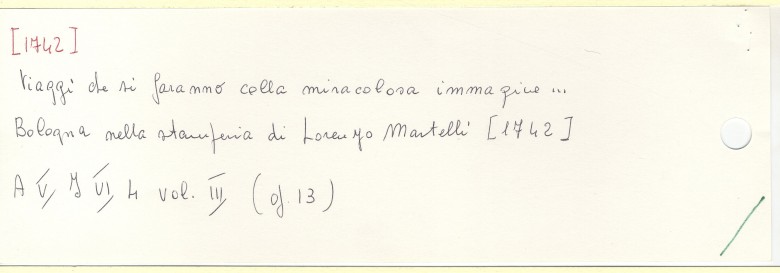 [1742]
Viaggi che si faranno colla miracolosa immagine...
Bologna nella stamperia di Lorenzo Martelli [1742]
A V, VI, 4 vol. III (op. 13)